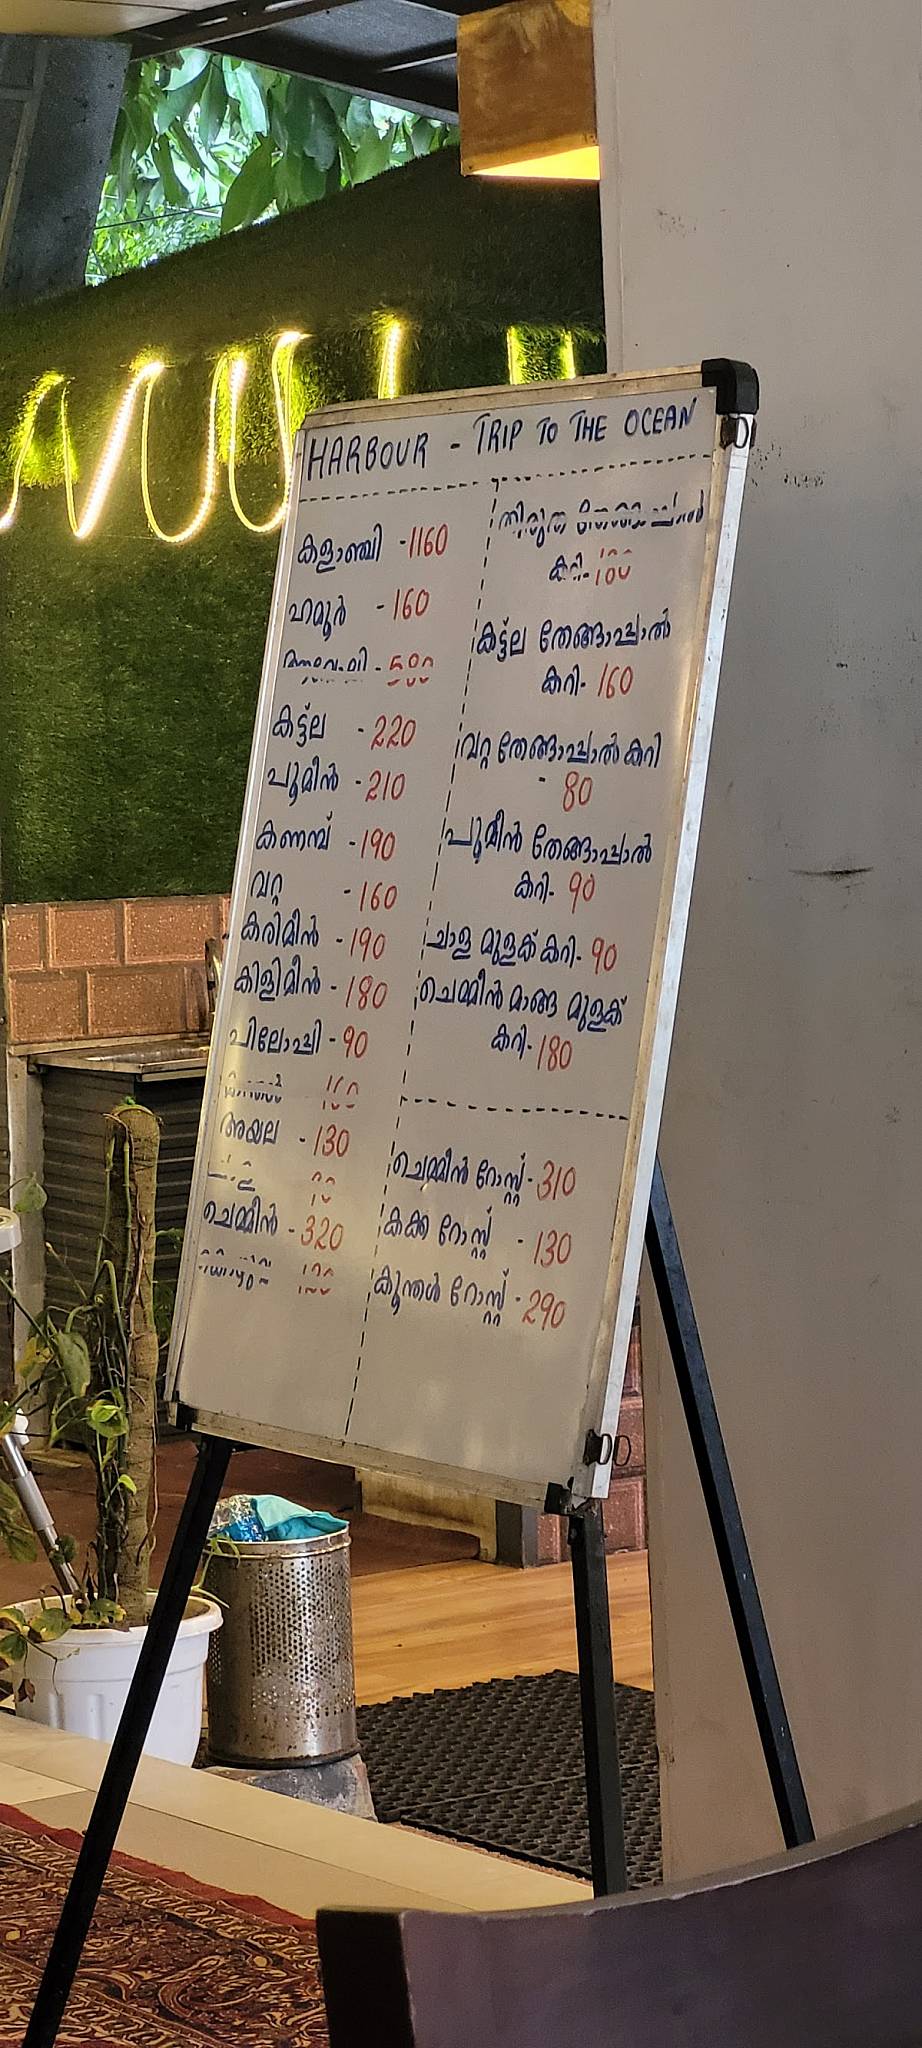 HARBOUR - TRIP TO THE OCEAN
കളാഞ്ചി - 1160
ഹമൂർ - 160
കട്ട്ല - 220
പൂമീൻ - 210
കണമ്പ് - 190
വറ്റ - 160
കരിമീൻ - 190
കിളിമീൻ - 180
പിലോപ്പി - 90
അയല - 130
ചെമ്മീൻ - 320
കറി-
കട്ട്ല തേങ്ങാപ്പാൽ
കറി- 160
വറ്റ തേങ്ങാപ്പാൽ കറി
- 80
പൂമീൻ തേങ്ങാപ്പാൽ
കറി- 90
ചാള മുളക് കറി- 90
ചെമ്മീൻ മാങ്ങ മുളക്
കറി- 180
ചെമ്മീൻ റോസ്റ്റ് - 310
കക്ക റോസ്റ്റ് - 130
കൂന്തൾ റോസ്റ്റ് - 290